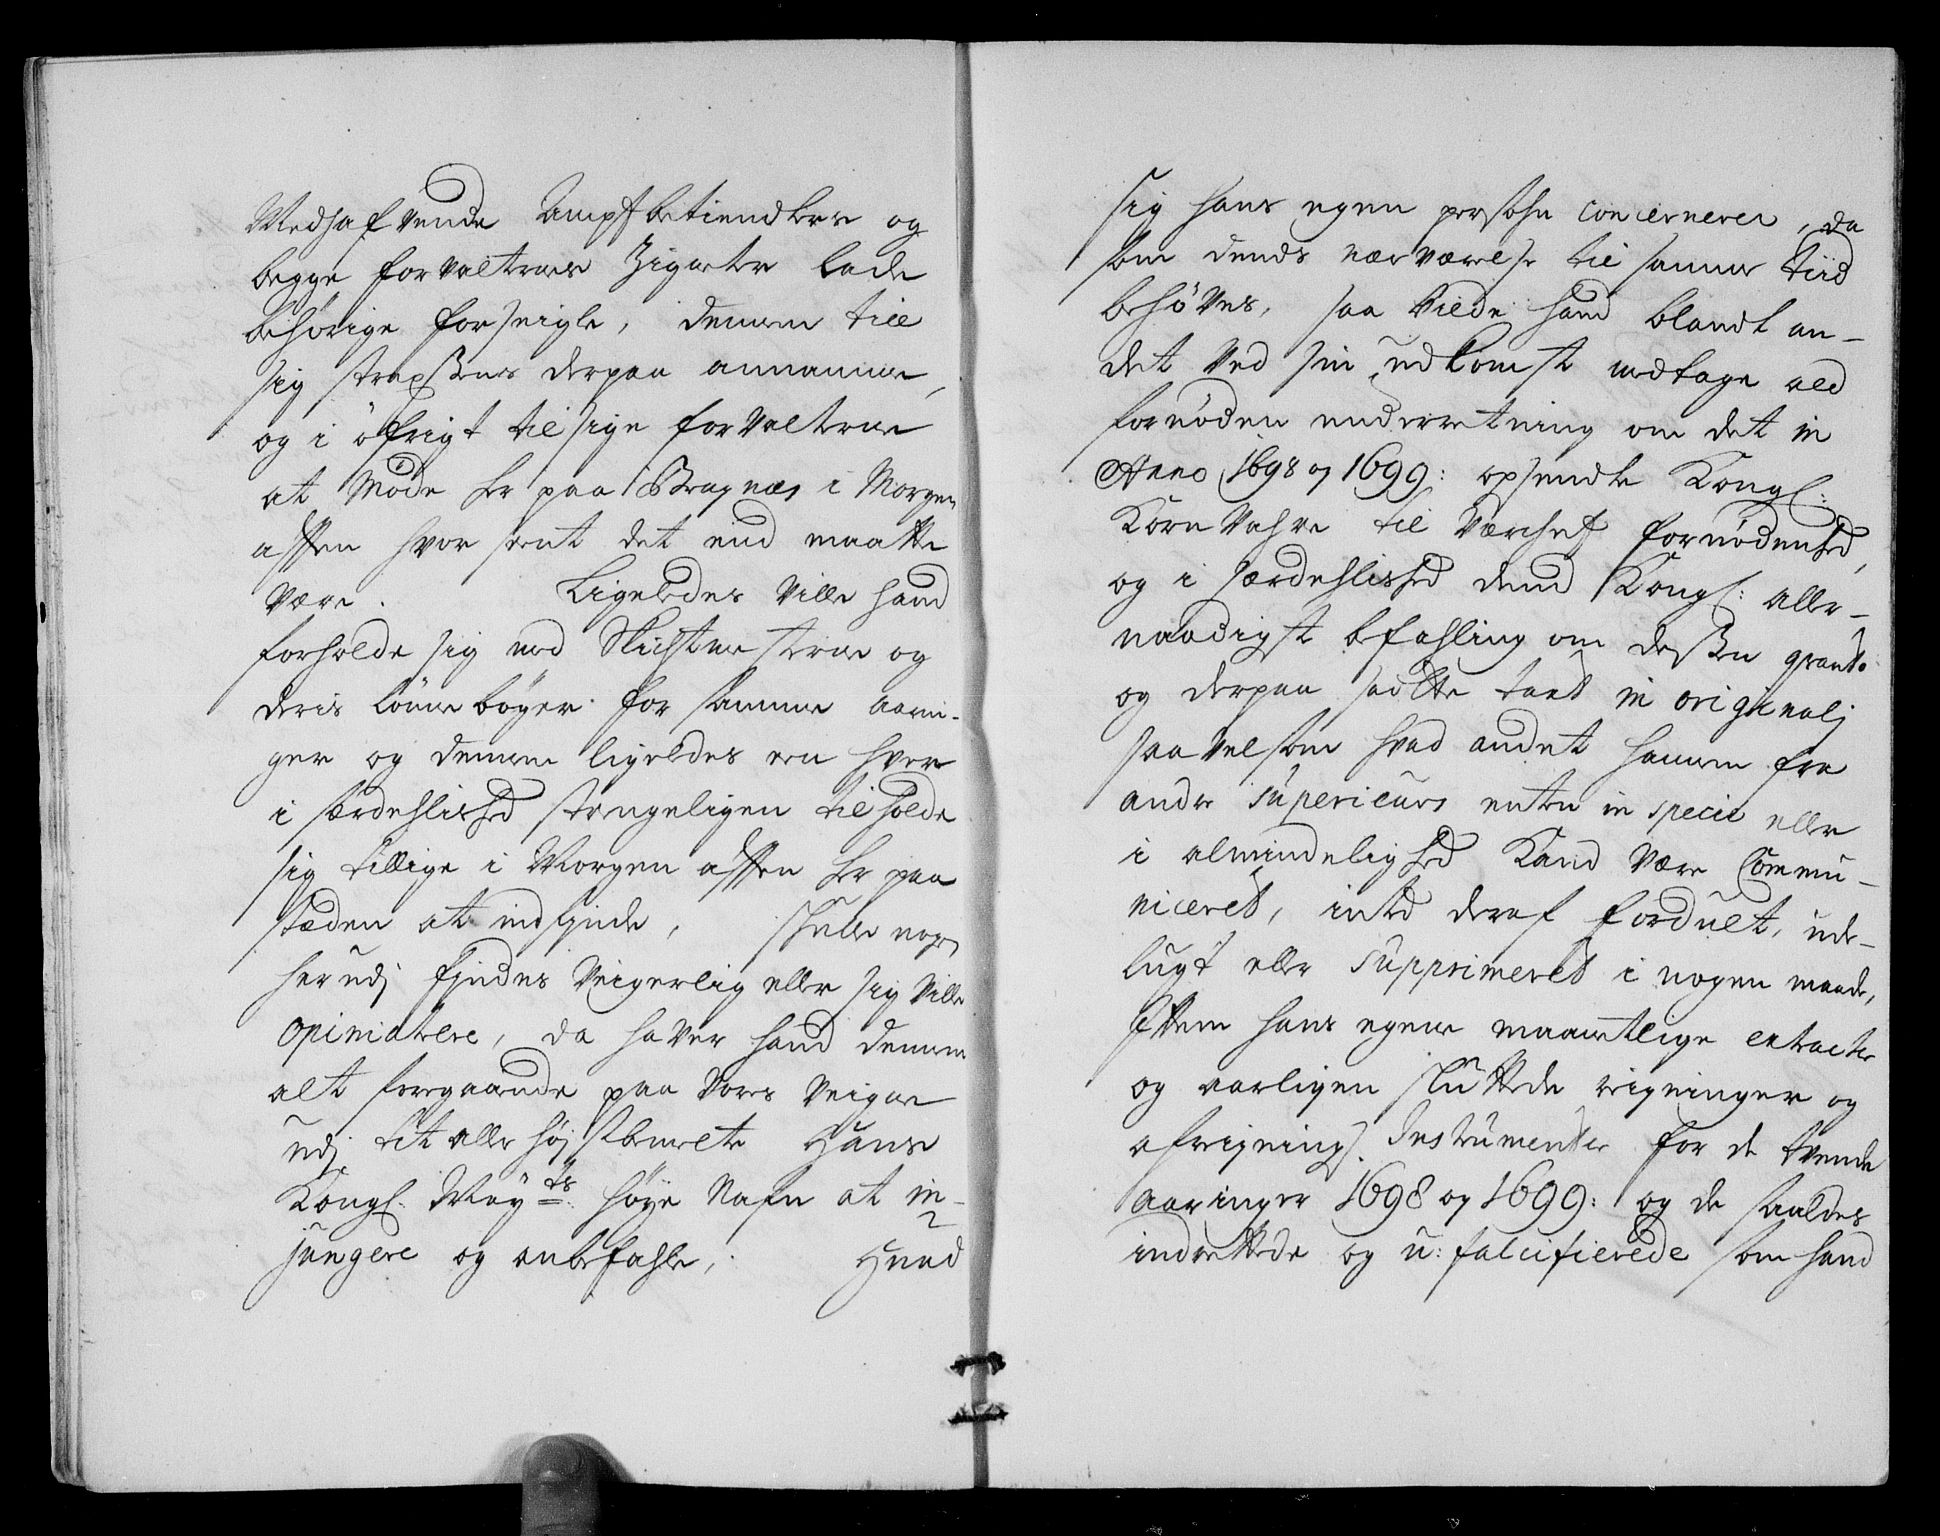 Medhafvende Ampstbetiendtere og
begge forvalternes Zigneter lade
behörige forseigle, dennem till
sig strax derpaa annamme,
og i öfrigt tilsige forvalterne
at möde her paa Bragnæs i Morgen
afften hvor seent det end maatte
være. Ligeledes ville hand
forholde sig med Skichtmesterne og
deris lönne böger for samme aarin-
ger og dennem ligeledes een hver
i særdehlished strengeligen tilholde
sig tillige i Morgen afften her paa
stæden at indfinde, skulle nogen
herudj findes Veigerlig eller sig ville
opiniatrere, da haver hand dennem
alt foregaaende paa vores Veigne
udj dit aller höjstbemelte Hans
Kongl. Mayts höye Nafn at in-
jungere og anbefahle, Hvad
sig hans egen persohn concernerer, da
som dends nærværelse til samme tiid
behöves, saa vilde hand blandt an-
det ved sin udkomst medtage ald
fornöden underretning om det in
Anno 1698 og 1699: opsendte Kongl:
Korn Vahre til Værchets fornödenhed,
og i særdehlished dend Kongl: aller-
naadigste befahling om dessen
og derpaa sadtte taxt in originalj
saavelsom hvad andet hannem fra
andre Superieurs enten in specie eller
i almindelighed Kand være Commu-
niceret, inted deraf fordult, ude-
lugt eller supprimeret i nogen maade,
Ittem hans egene maanetlige extracter
og aarligen sluttede reigninger og
afreignings Instrumenter for de tvende
aaringer 1698 og 1699: og de saaledes
indrettede og u: falcifierede som hand